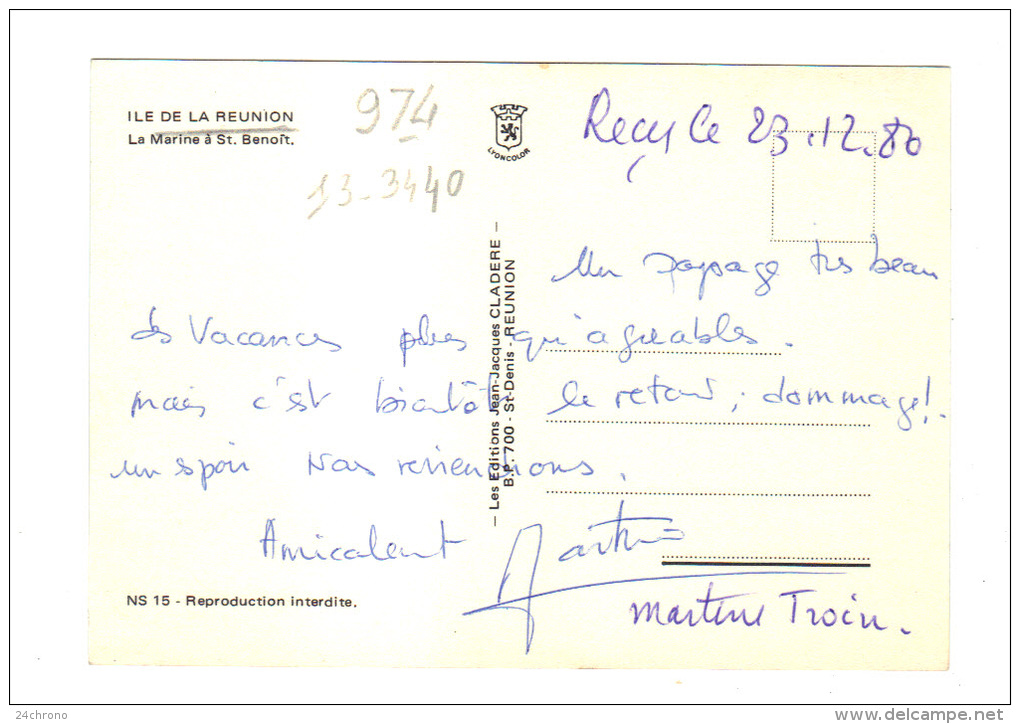 ILE DE LA REUNION
La Marine à St. Benoît.
974
13-3440
LYONCOLOR
Reçu le 23.12.80
Un paysage très beau
des Vacances plus qu'agréables.
mais c'est bientôt le retour, dommage!.
un espoir Nous reviendrons.
Amicalement Martine
Martine Troin.
— Les Editions Jean-Jacques CLADERE —
B.P. 700 - St-Denis - REUNION
NS 15 - Reproduction interdite.
24chrono
www.delcampe.net